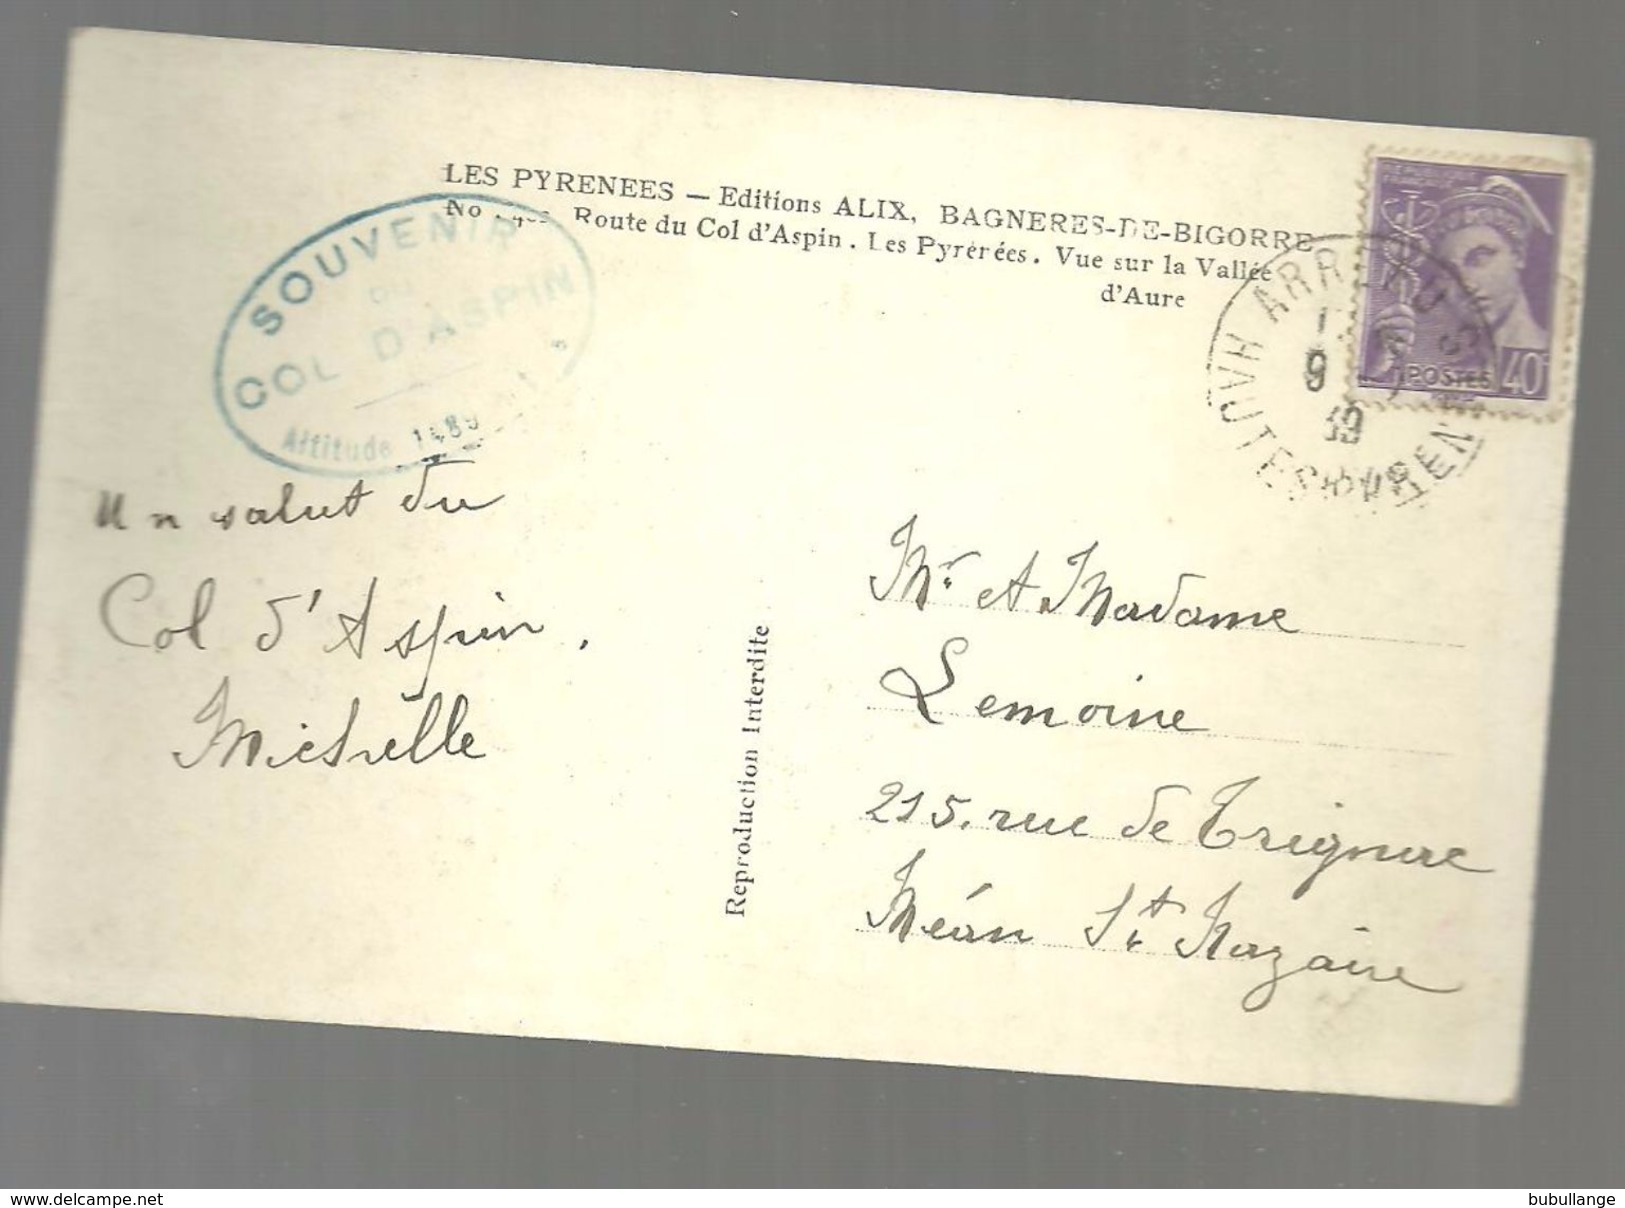 LES PYRENEES — Editions ALIX, BAGNERES-DE-BIGORRE
No Route du Col d'Aspin. Les Pyrérées. Vue sur la Vallée
d'Aure
SOUVENIR
DU
COL D'ASPIN
Altitude 1489
ARREAU
HAUTES PYREN
9
39
POSTES 40
Un salut du
Col d'Aspin.
Michelle
Reproduction Interdite
Mr et Madame
Lemoine
215, rue de Trignac
Méan St Nazaire
www.delcampe.net
bubullange